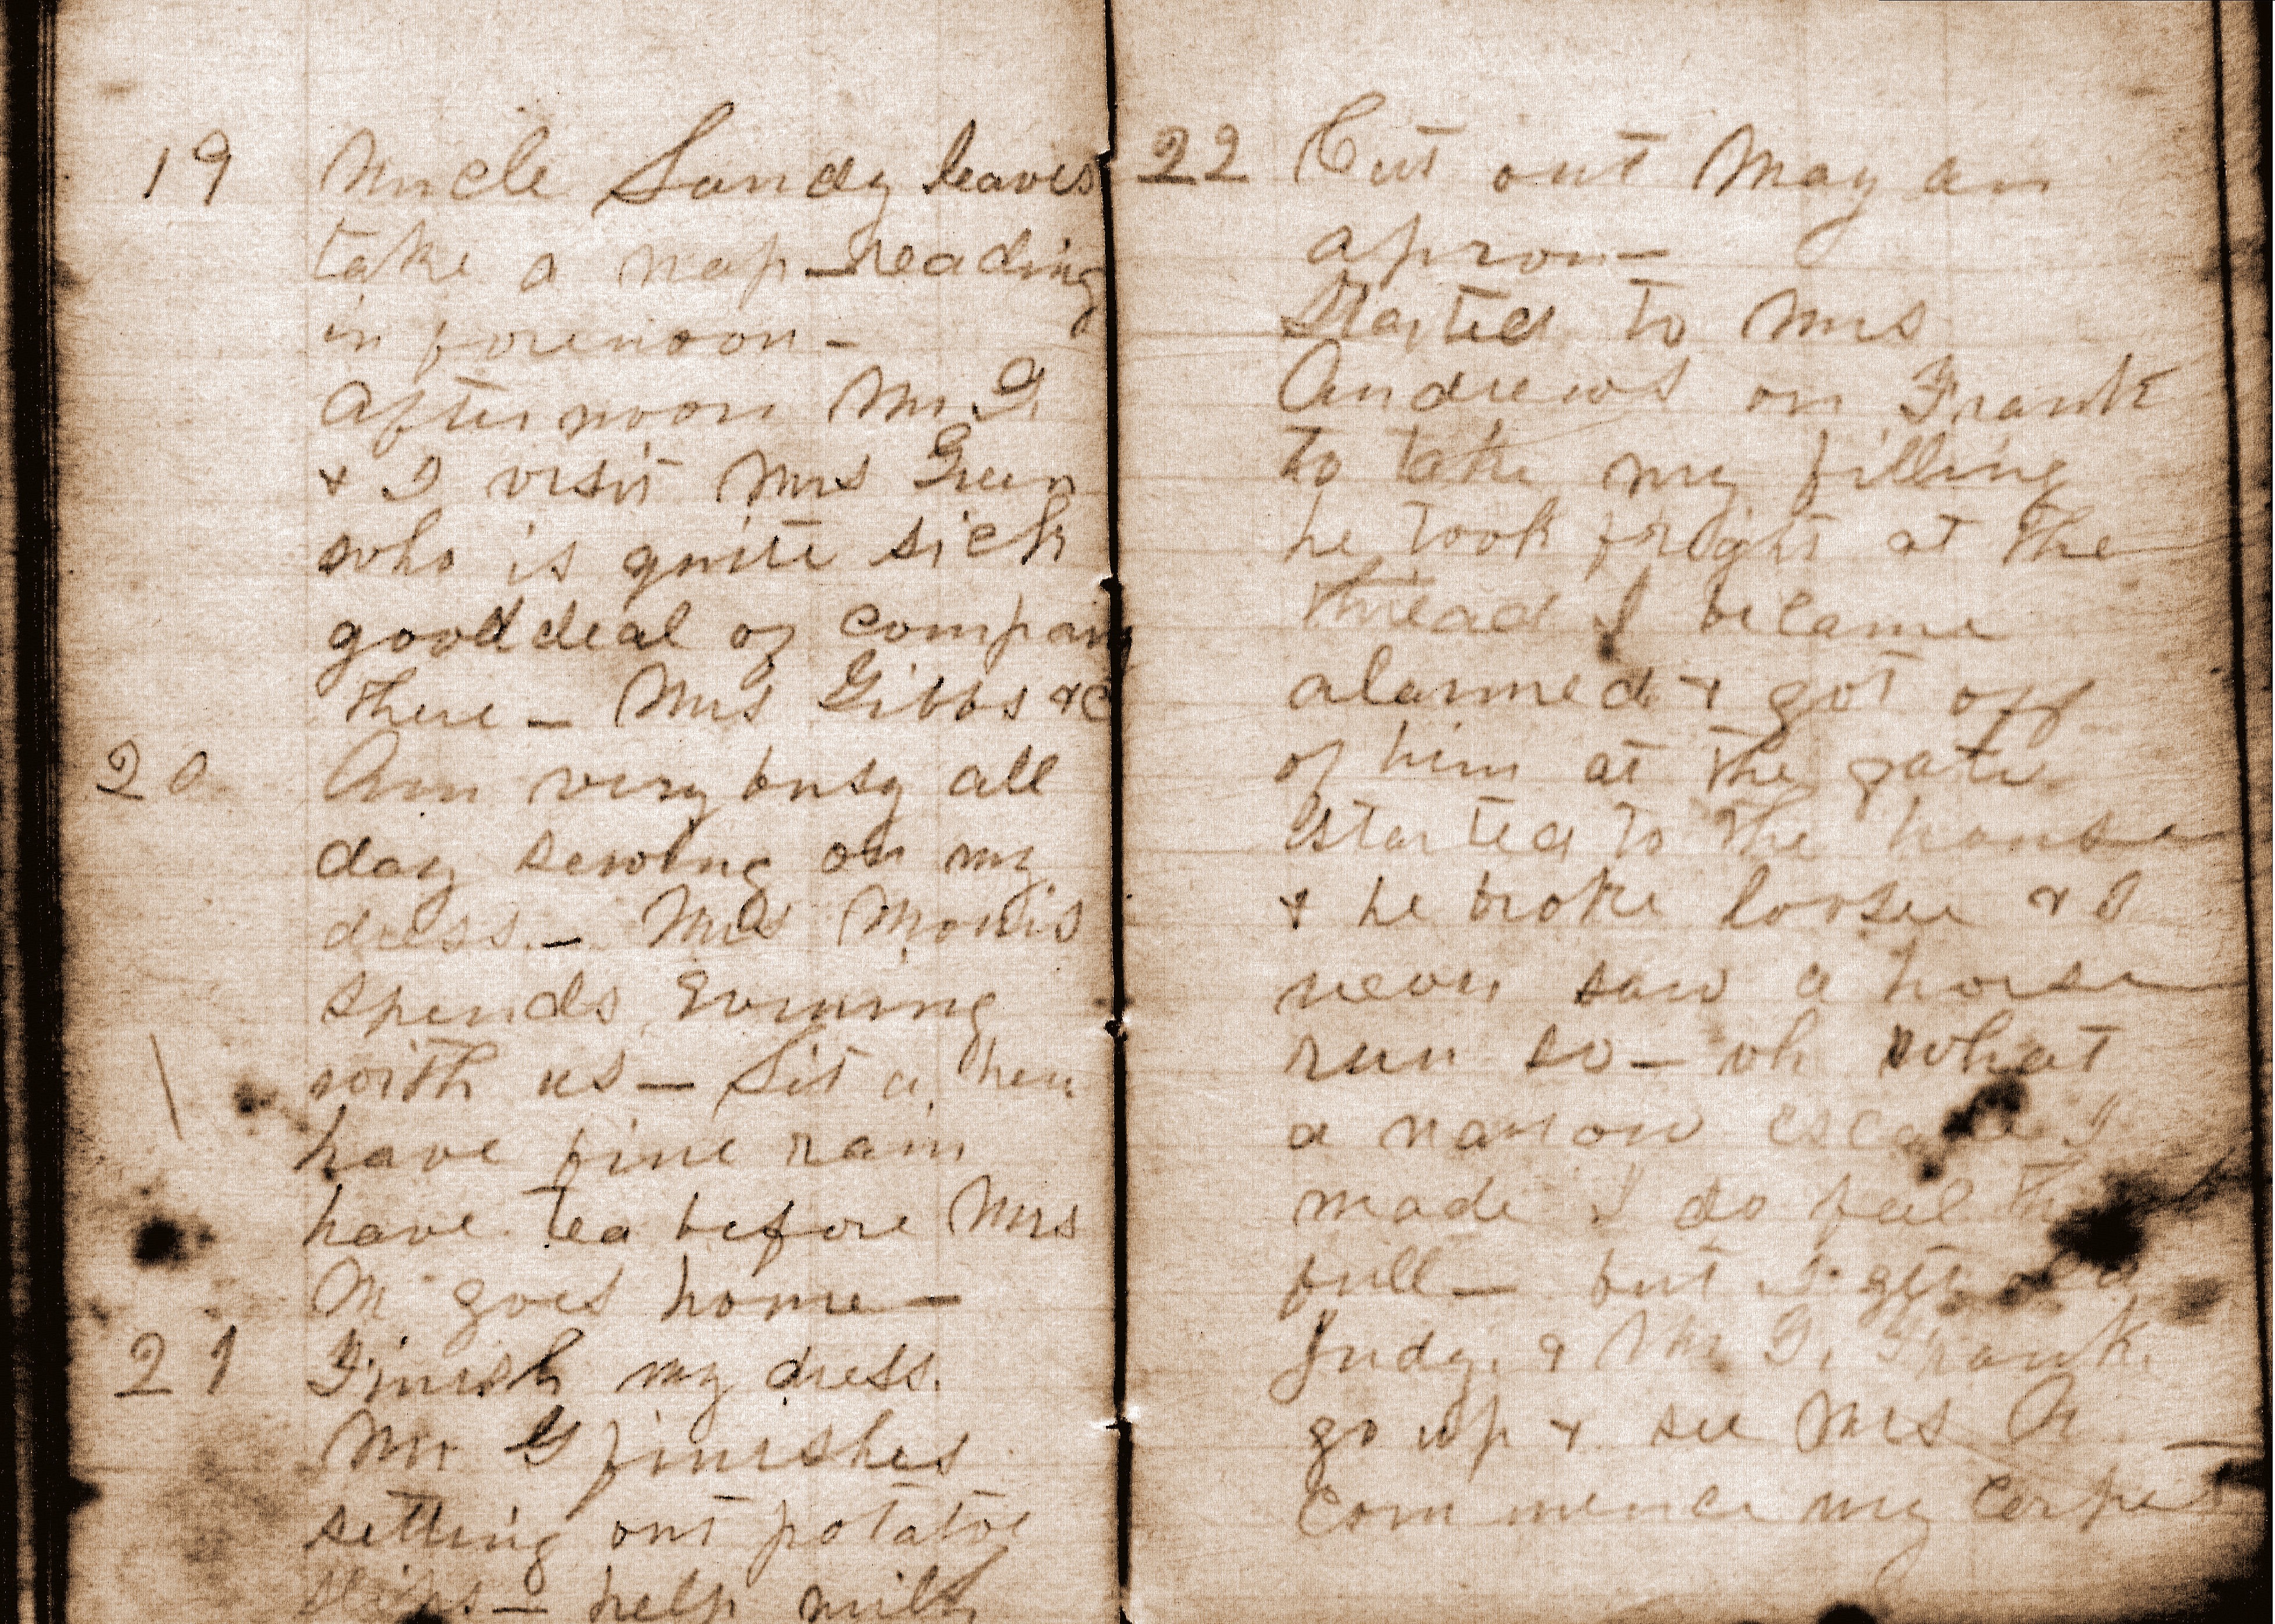 19 Uncle Sandy leaves
take a nap — reading
in forenoon —
afternoon Mr. G.
& I visit Mrs Green
who is quite sick
good deal of company
there — Mrs Gibbs &c
20 Am very busy all
day sewing on my
dress. — Mrs Morris
spends evening
with us — Set a hen
have fine rain
have tea before Mrs
M goes home —
21 Finish my dress.
Mr G finishes
setting out potatoe
slips — help milk
22 Cut out May an
apron —
Started to Mrs
Andrews on Frank
to take my filling
he took fright at the
thread I became
alarmed & got off
of him at the gate
started to the house
& he broke loose & I
never saw a horse
run so — oh what
a narrow escape I
made I do feel thank
full — but I get on
Judy. & Mr G. Frank.
go up & see Mrs A —
Commence my carpet